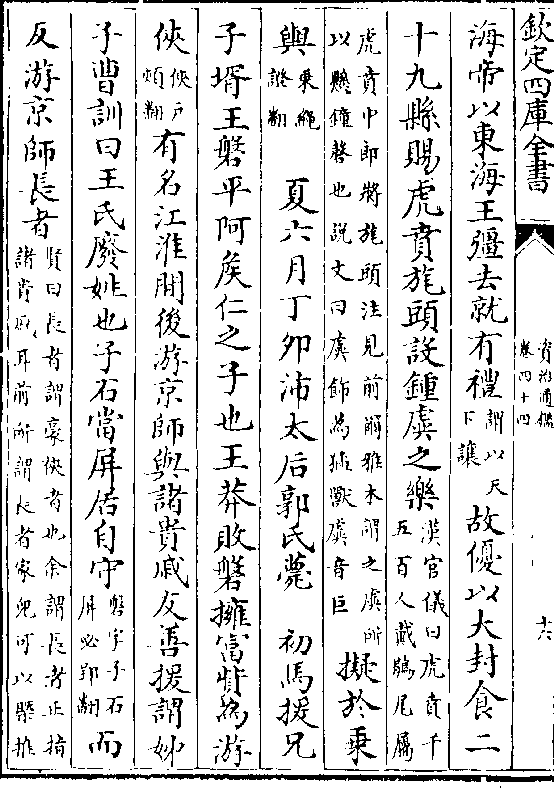 欽定四庫全書
資治通鑑
卷四十四
十六
海帝以東海王彊去就有禮謂以天下讓故優以大封食二
十九縣賜虎賁旄頭設鍾虡之樂漢官儀曰虎賁千五百人戴鶡尾屬
虎賁中郎將旄頭注見前爾雅木謂之虡所以懸鐘磬也説文曰虡飾為猛獸虡音巨擬於乗
輿乗繩證翻夏六月丁卯沛太后郭氏薨 初馬援兄
子壻王磐平阿侯仁之子也王莽敗磐擁富貲為游
俠俠户頰翻有名江淮間後游京師與諸貴戚友善援謂姊
子曹訓曰王氏廢姓也子石當屏居自守磐字子石屏必郢翻而
反游京師長者賢曰長者謂豪俠者也余謂長者正指諸貴戚耳前所謂長者家兒可以槩推